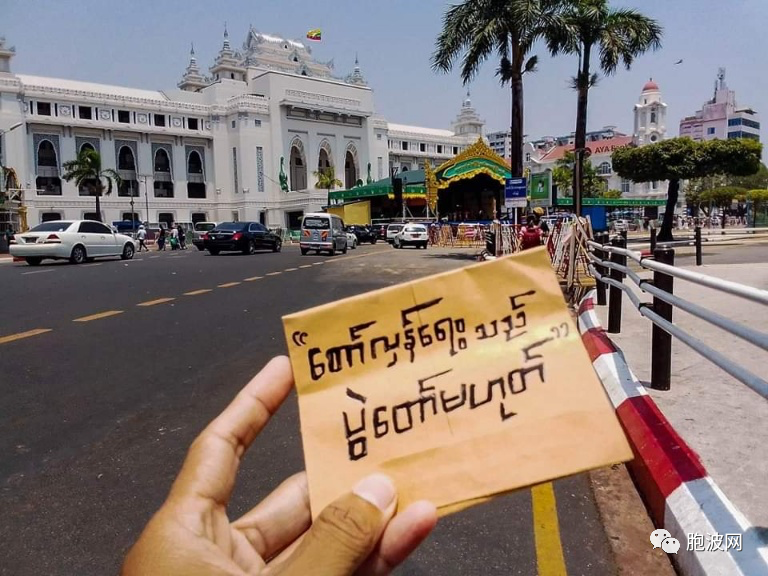 AYA BA
“တော်လှန်ရေး သည်
ပွဲတော်မဟုတ်”
胞波网